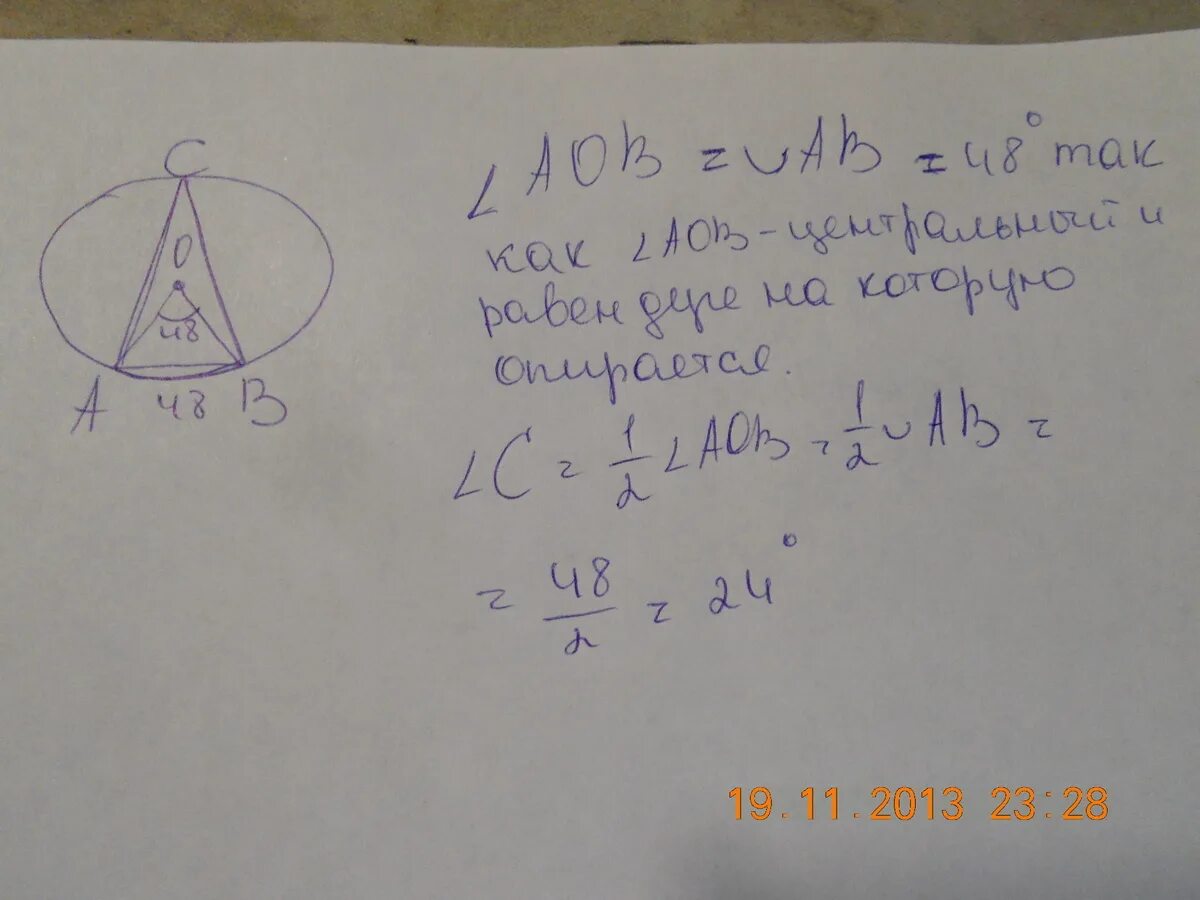 C
O
48
A 48 B
∠AOB = ◡AB = 48° так
как ∠AOB - центральный и
равен дуге на которую
опирается.
∠C = 1/2 ∠AOB = 1/2 ◡AB =
= 48/2 = 24°
19.11.2013 23:28